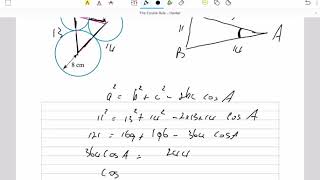 The Cosine Rule - Harder
13
14
8 cm
11
A
B
14
a² = b² + c² - 2bc cos A
11² = 13² + 14² - 2x13x14 cos A
121 = 169 + 196 - 364 cos A
364 cos A = 244
cos